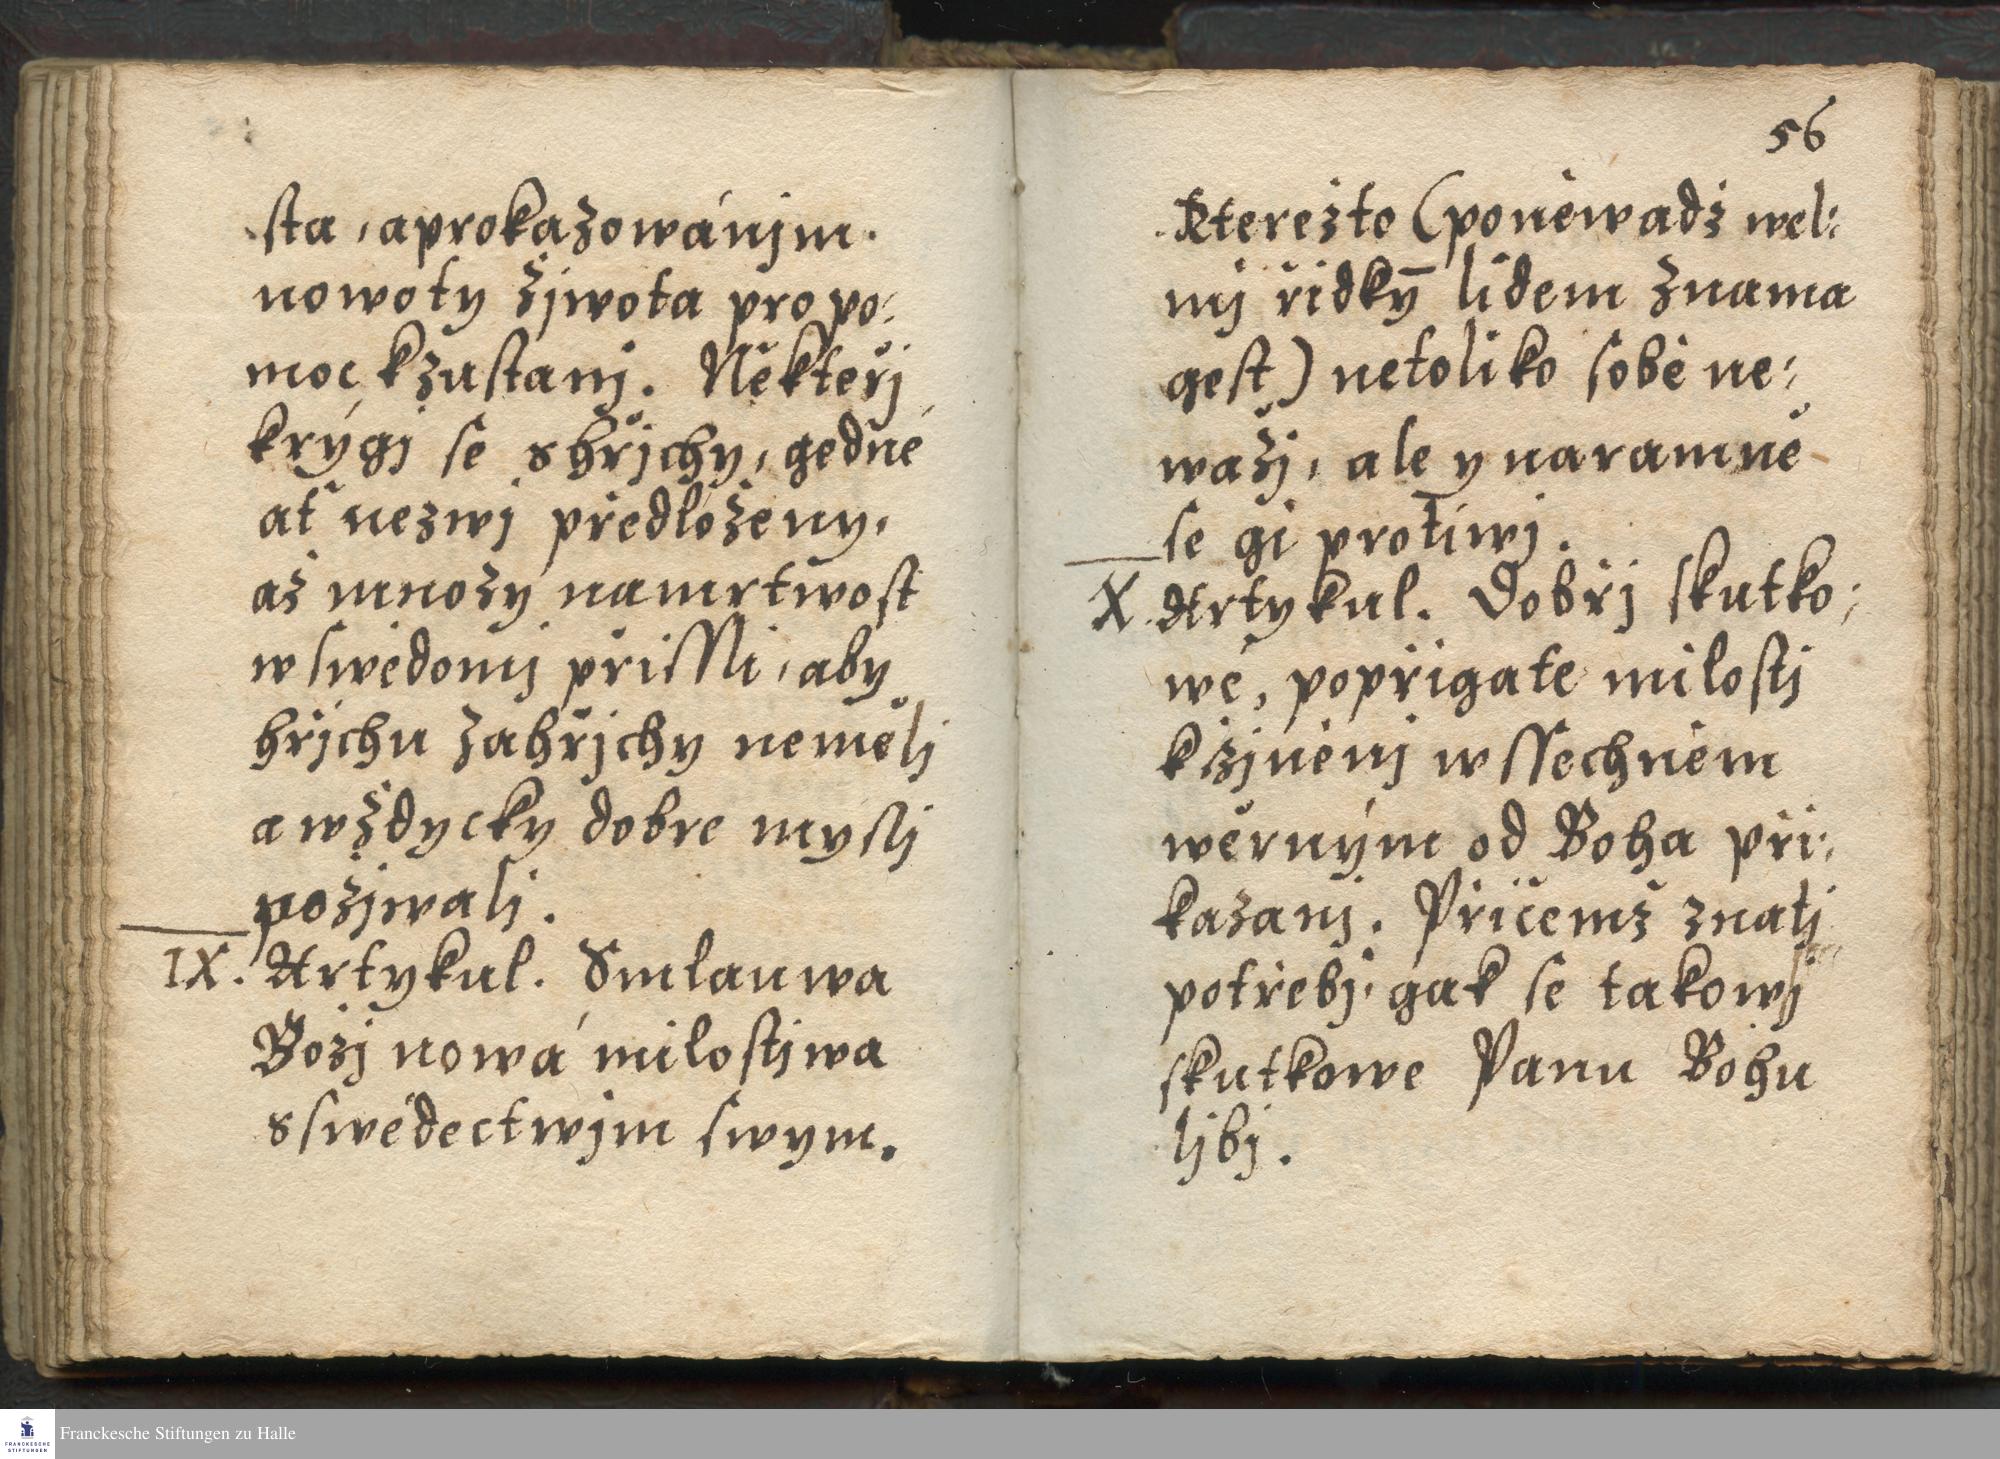 sta, aprokazowánjm
nowoty žiwota pro po:
moc kzustanj. Někteřj
krýgj se s hřjchy, gedné
ať nezwj předloženy,
až mnozý namrtwost
w swědomj přissli, aby
hřjchu zahřjchy neměli
a wždycky dobre mysli
požjwalj.
IX. Artykul. Smlauwa
Božj nowá milostjwa
s swědectwjm swym.
56
Kterežto (poněwadž wel:
mj řidkȳ lidem znama
gest) netoliko sobě ne:
wažj, ale y naramně
se gi protiwj.
X. Artykul. Dobřj skutko:
wé, popřigate milosti
k žjněnj w ssechněm
wěrným od Boha při:
kazanj. Přičemž znatj
potřebj, gak se takowj
skutkowe Panu Bohu
ljbj.
Franckesche Stiftungen zu Halle
FRANCKESCHE
STIFTUNGEN